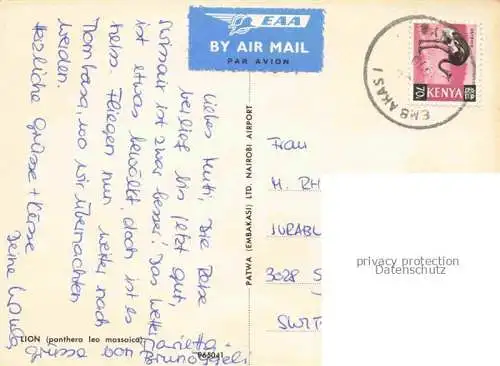 EAA
BY AIR MAIL
PAR AVION
EMBAKASI
70c
KENYA
Liebes Mutti, Die Reise
verlief bis jetzt gut,
Rückflug ist zwar besser! Das Wetter
ist etwas bewölkt, doch ist es
heiss. Fliegen nun weiter nach
Mombasa, wo wir übernachten
werden.
Herzliche Grüsse + Küsse
Deine
Grüsse von Marietta
PATWA (EMBAKASI) LTD. NAIROBI AIRPORT
Frau
M. RH
JURABL
3028 S
SWIT
privacy protection
Datenschutz
LION (panthera leo massaica)
965041